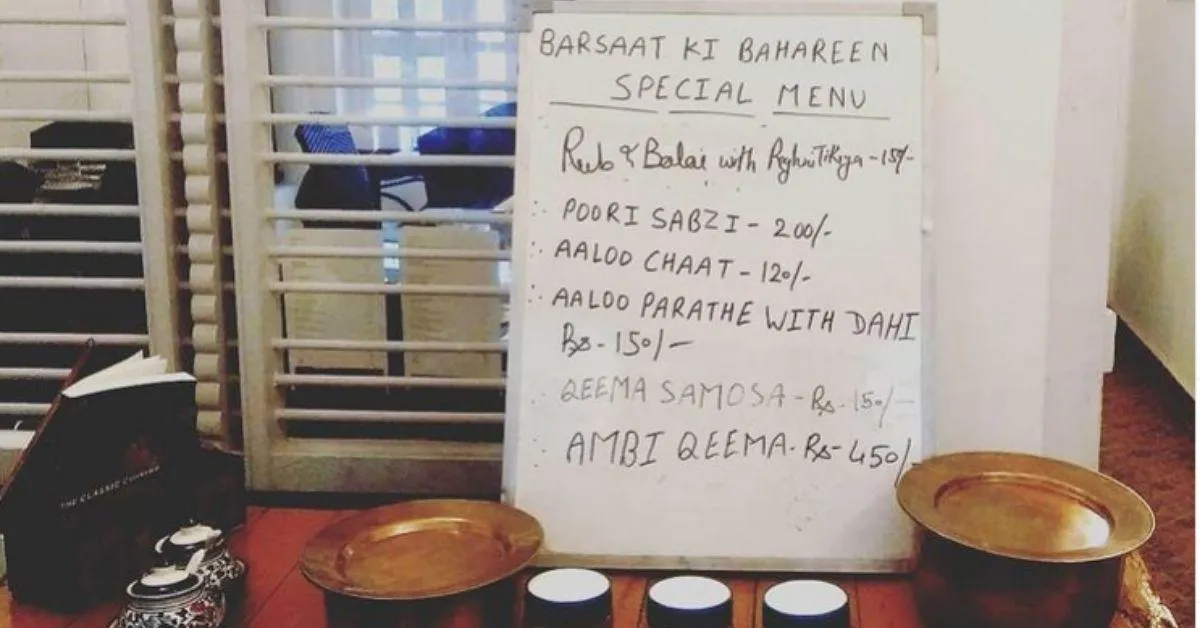 BARSAAT KI BAHAREEN
SPECIAL MENU
& Balai with - 15/-
POORI SABZI - 200/-
AALOO CHAAT - 120/-
AALOO PARATHE WITH DAHI
Rs - 150/-
QEEMA SAMOSA - Rs - 150/-
AMBI QEEMA - Rs - 450/-
THE CLASSIC